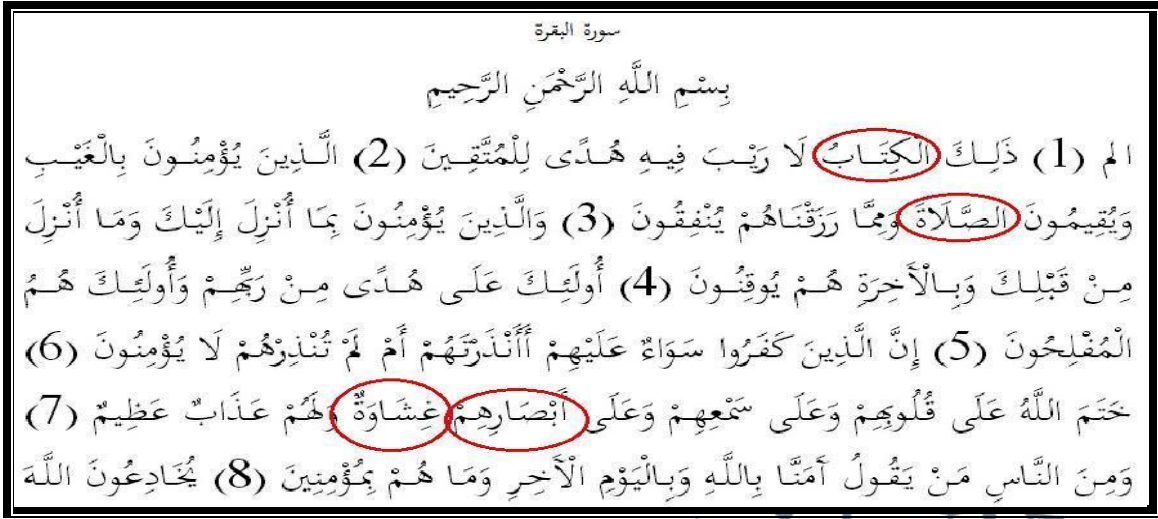 سورة البقرة
بِسْمِ اللَّهِ الرَّحْمَنِ الرَّحِيمِ
الم (1) ذَلِكَ الْكِتَابُ لَا رَيْبَ فِيهِ هُدًى لِلْمُتَّقِينَ (2) الَّذِينَ يُؤْمِنُونَ بِالْغَيْبِ
وَيُقِيمُونَ الصَّلَاةَ وَمِمَّا رَزَقْنَاهُمْ يُنْفِقُونَ (3) وَالَّذِينَ يُؤْمِنُونَ بِمَا أُنْزِلَ إِلَيْكَ وَمَا أُنْزِلَ
مِنْ قَبْلِكَ وَبِالْآَخِرَةِ هُمْ يُوقِنُونَ (4) أُولَئِكَ عَلَى هُدًى مِنْ رَبِّهِمْ وَأُولَئِكَ هُمُ
الْمُفْلِحُونَ (5) إِنَّ الَّذِينَ كَفَرُوا سَوَاءٌ عَلَيْهِمْ أَأَنْذَرْتَهُمْ أَمْ لَمْ تُنْذِرْهُمْ لَا يُؤْمِنُونَ (6)
خَتَمَ اللَّهُ عَلَى قُلُوبِهِمْ وَعَلَى سَمْعِهِمْ وَعَلَى أَبْصَارِهِمْ غِشَاوَةٌ وَلَهُمْ عَذَابٌ عَظِيمٌ (7)
وَمِنَ النَّاسِ مَنْ يَقُولُ آَمَنَّا بِاللَّهِ وَبِالْيَوْمِ الْآَخِرِ وَمَا هُمْ بِمُؤْمِنِينَ (8) يُخَادِعُونَ اللَّهَ